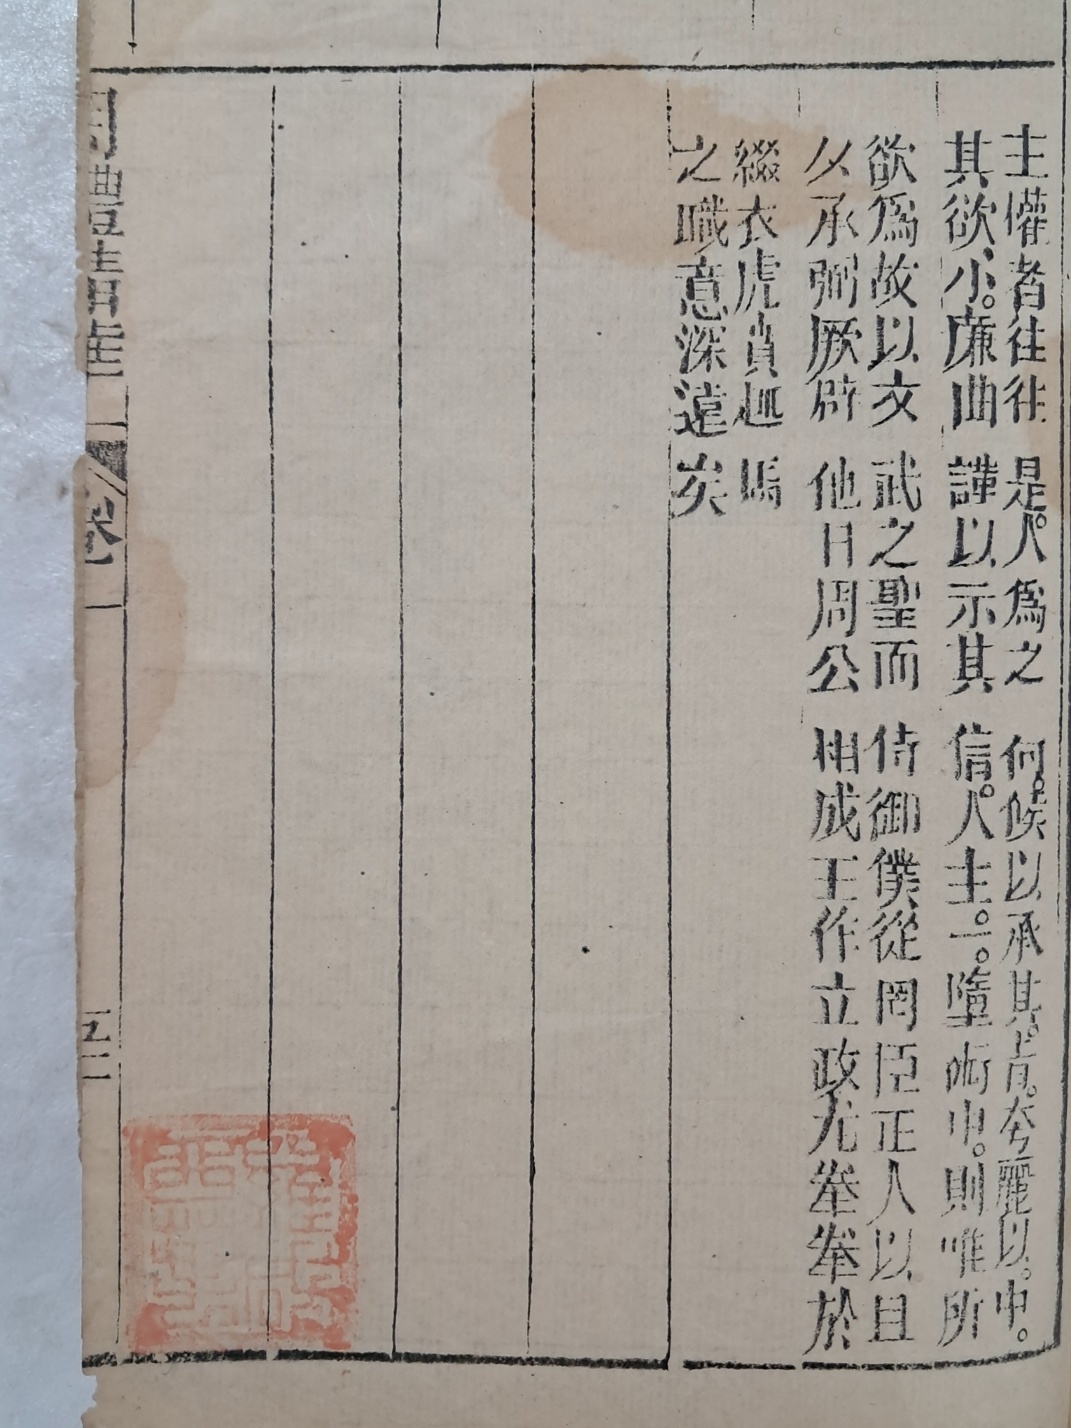 主權者往往是。人爲之伺。候以承其。旨。夸麗以。中。
其欲、小。廉曲謹以示其信。人主。一。墮術中。則唯所
欲爲故以文武之聖而侍御僕從罔臣正人以且
夕承弼厥辟他日周公相成王作立政尤拳拳於
綴衣虎賁趣馬
之職意深遠矣
周禮精華
卷一